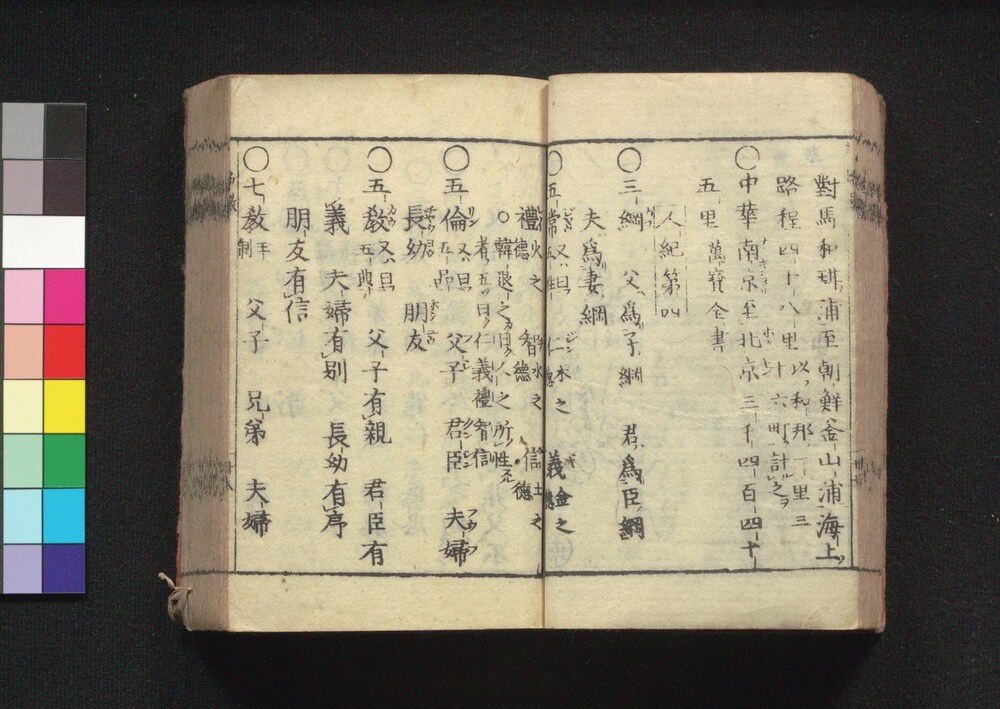 對馬和珥浦至朝鮮釜山浦海上
路程四十八里以和那一里三十六町計之
〇中華南京至北京三千四百四十
五里萬寶全書
人紀第四
〇三綱 父爲子綱 君爲臣綱
夫爲妻綱
〇五常又曰五性 仁木之德 義金之德
禮火之德 智水之德 信土之德
〇韓退之曰人之所性
者五曰仁義禮智信
〇五倫又曰五品 父子 君臣 夫婦
長幼 朋友
〇五教又曰五典 父子有親 君臣有
義 夫婦有別 長幼有序
朋友有信
〇七教王制 父子 兄弟 夫婦